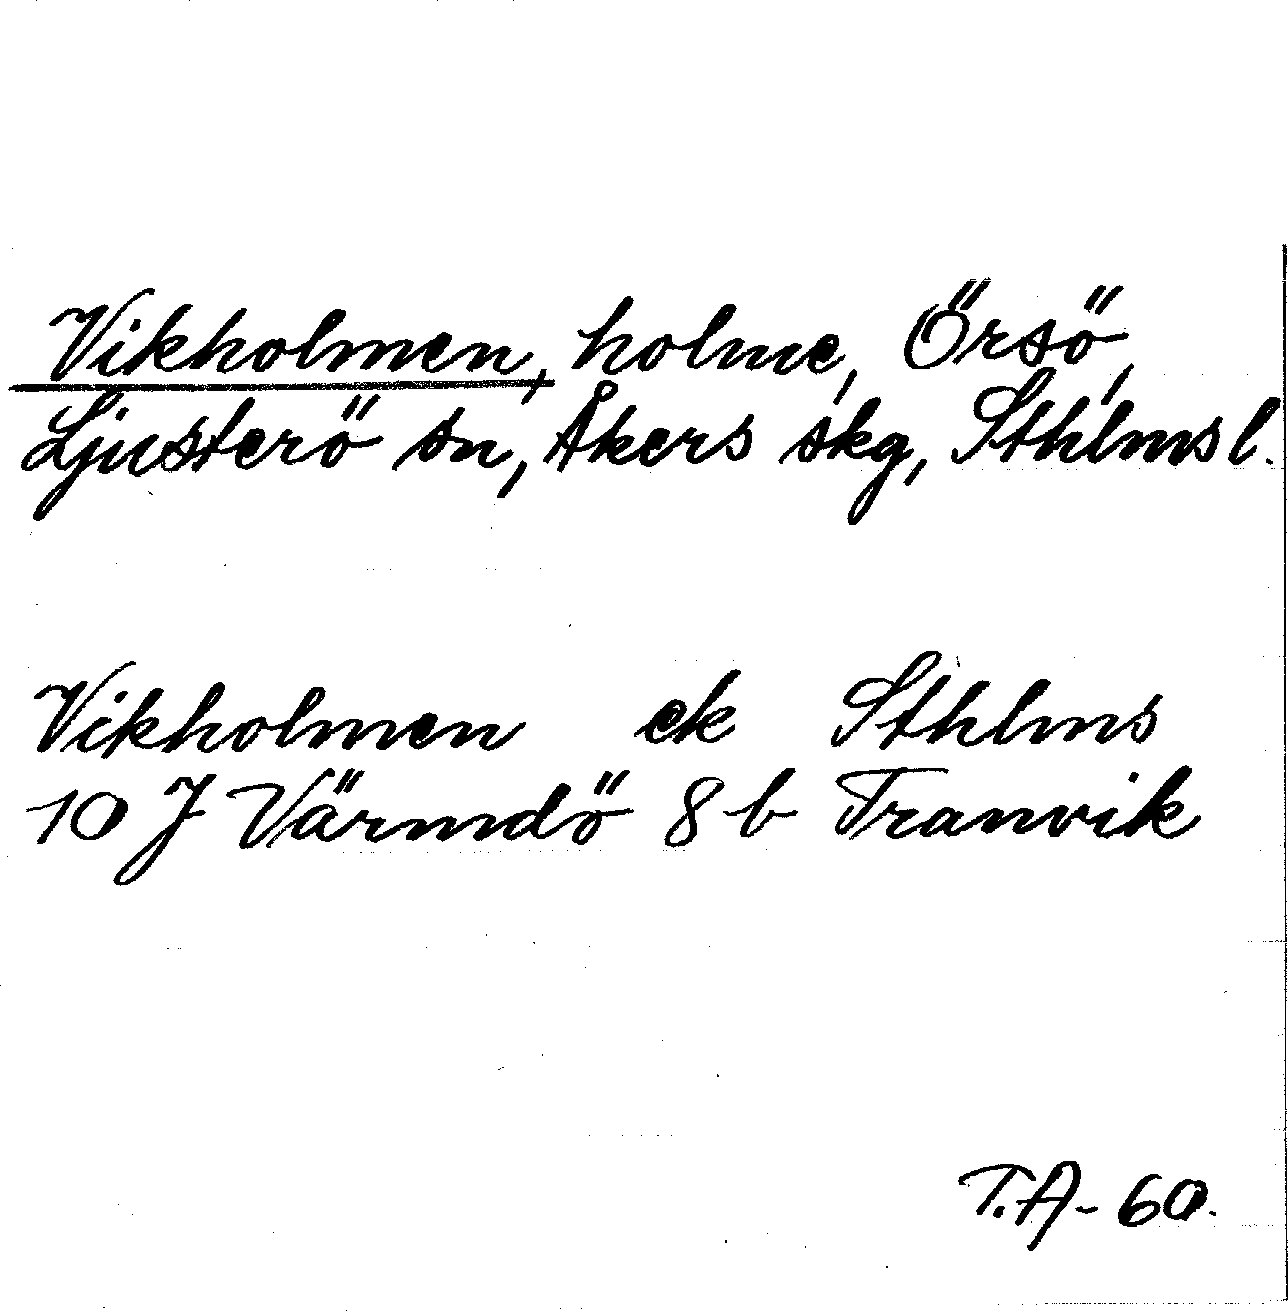 Vikholmen, holme, Örsö,
Ljusterö sn, Åkers skg, Sthlms l.
Vikholmen ek Sthlms
10 J Värmdö 8 b Tranvik
T.A-60.